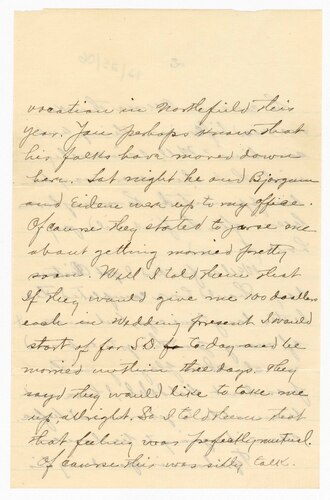 vocation in Northfield this
year. You perhaps know that
his folks have moved down
here. Sat night he and Bjorgum
and Eidem were up to my office.
Of course they started to me
about getting married pretty
soon. Well I told them that
If they would give me 100 dollars
each in Wedding present I would
start of for S.D. to day and be
married within three days. They
says they would like to take me
up, allright. So I told them that
that feeling was perfectly mutual.
Of course this was silly talk.